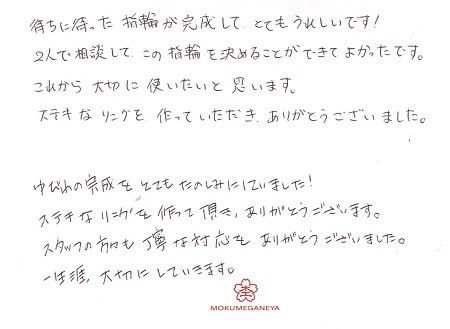 待ちに待った指輪が完成して、とてもうれしいです！
2人で相談して、この指輪を決めることができてよかったです。
これから大切に使いたいと思います。
ステキなリングを作っていただき、ありがとうございました。
ゆびわの完成をとてもたのしみにしていました！
ステキなリングを作って頂き、ありがとうございます。
スタッフの方も丁寧な対応をありがとうございました。
一生涯、大切にしていきます。
MOKUMEGANEYA